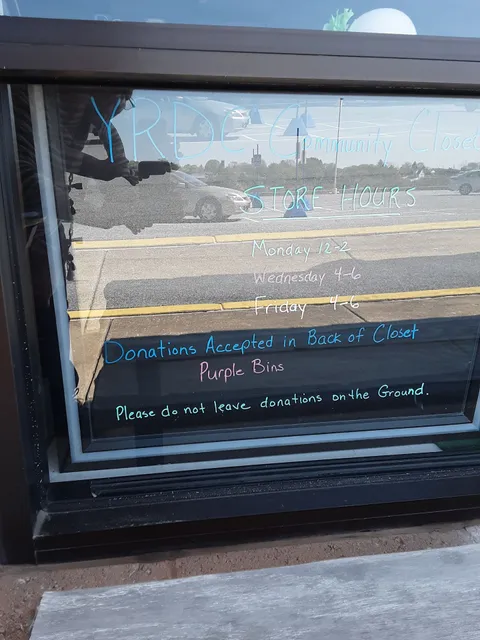 YRDC Community Closet
STORE HOURS
Monday 12-2
Wednesday 4-6
Friday 4-6
Donations Accepted in Back of Closet
Purple Bins
Please do not leave donations on the Ground.